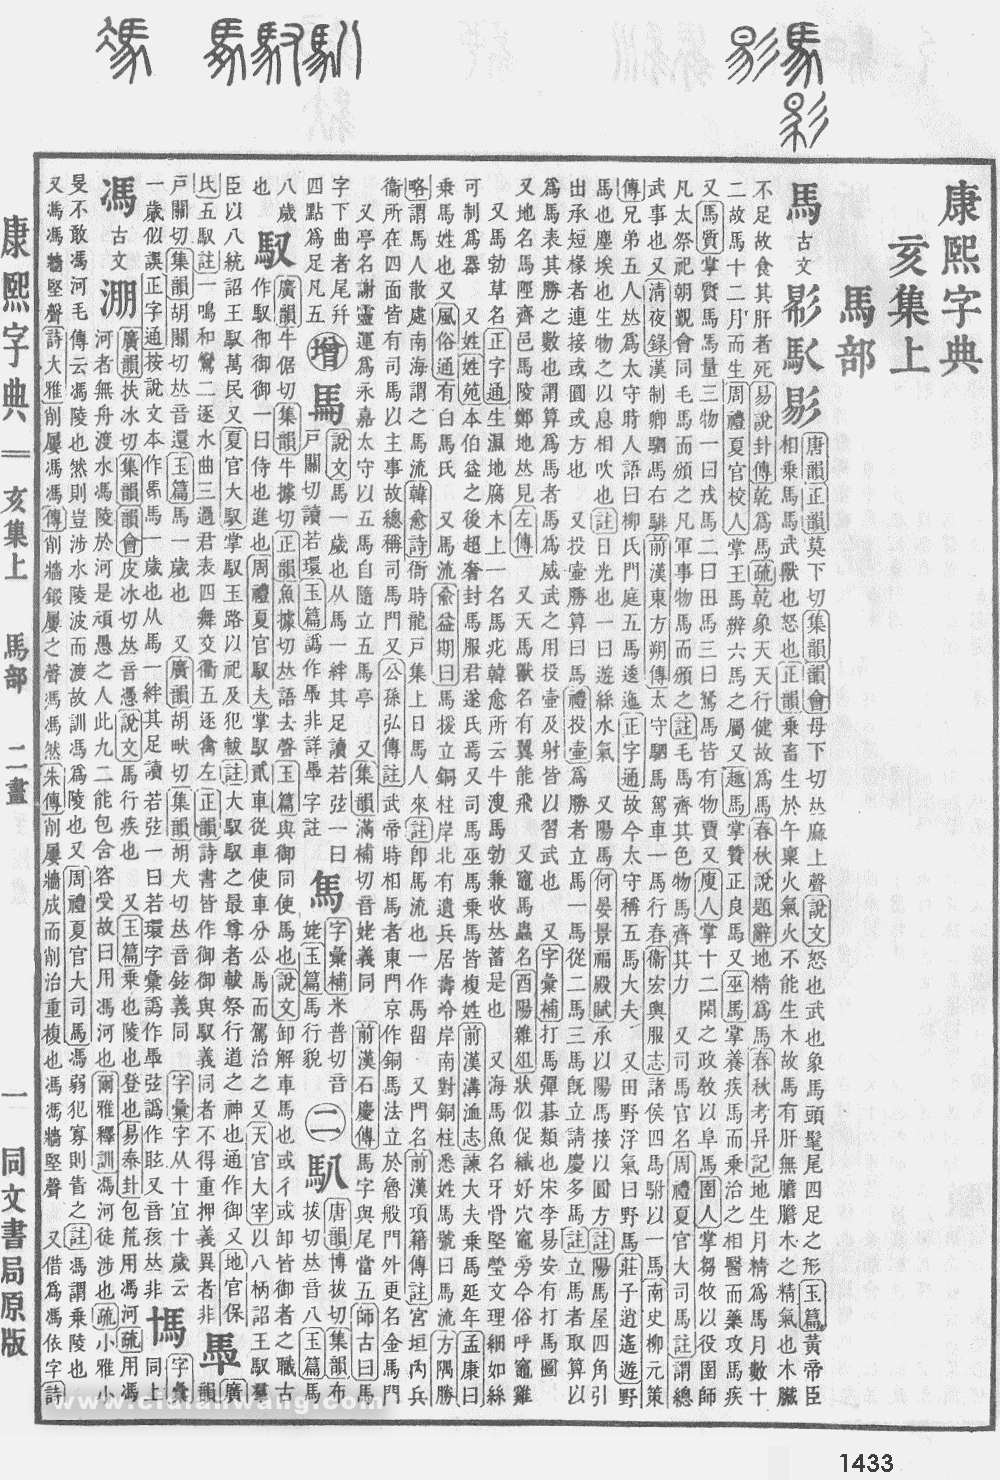 康熙字典
亥集上
馬部
馬古文
唐韻正韻莫下切集韻韻會母下切𠀤麻上聲說文怒也武也象馬頭髦尾四足之形玉篇黃帝臣
相乘馬馬武獸也怒也正韻乘畜生於午稟火氣火不能生木故馬有肝無膽膽木之精氣也木臟
不足故食其肝者死易說卦傳乾爲馬疏乾象天天行健故爲馬春秋說題辭地精爲馬春秋考异記地生月精爲馬月數十
二故馬十二月而生周禮夏官校人掌王馬辨六馬之屬又趣馬掌贊正良馬又巫馬掌養疾馬而乘治之相醫而藥攻馬疾
又馬質掌質馬馬量三物一曰戎馬二曰田馬三曰駑馬皆有物賈又廋人掌十二閑之政敎以阜馬圉人掌芻牧以役圉師
凡太祭祀朝覲會同毛馬而頒之凡軍事物馬而頒之註毛馬齊其色物馬齊其力 又司馬官名周禮夏官大司馬註謂總
武事也又淸夜錄漢制卿駟馬右騑前漢東方朔傳太守駟馬駕車一馬行春衞宏輿服志諸侯四馬駙以一馬南史柳元策
傳兄弟五人𠀤爲太守時人語曰柳氏門庭五馬逶迤正字通故今太守稱五馬大夫 又田野浮氣曰野馬莊子逍遙遊野
馬也塵埃也生物之以息相吹也註日光也一曰遊絲水氣 又陽馬何晏景福殿賦承以陽馬接以圓方註陽馬屋四角引
出承短椽者連接或圓或方也 又投壷勝算曰馬禮投壷爲勝者立馬一馬從二馬三馬旣立請慶多馬註立馬者取算以
爲馬表其勝之數也謂算爲馬者馬爲威武之用投壷及射皆以習武也 又字彙補打馬彈碁類也宋李易安有打馬圖
又地名馬陘齊邑馬陵鄭地𠀤見左傳 又天馬獸名有翼能飛 又竈馬蟲名酉陽雜俎狀似促織好穴竈旁今俗呼竈雞
又馬勃草名正字通生濕地腐木上一名馬疕韓愈所云牛溲馬勃兼收𠀤蓄是也 又海馬魚名牙骨堅瑩文理細如絲
可制爲器 又姓姓苑本伯益之後趙奢封馬服君遂氏焉又司馬巫馬乘馬皆複姓前漢溝洫志諫大夫乘馬延年孟康曰
乘馬姓也又風俗通有白馬氏 又馬流兪益期曰馬援立銅柱岸北有遺兵居壽冷岸南對銅柱悉姓馬號曰馬流方隅勝
略謂馬人散處南海謂之馬流韓愈詩衙時龍戸集上日馬人來註卽馬流也一作馬留 又門名前漢項籍傳註宮垣內兵
衞所在四面皆有司馬以主事故總稱司馬門又公孫弘傳註武帝時相馬者東門京作銅馬法立於魯般門外更名金馬門
又亭名謝靈運爲永嘉太守以五馬自隨立五馬亭 又集韻滿補切音姥義同 前漢石慶傳馬字與尾當五師古曰馬
字下曲者尾幷
四點爲足凡五
增
戸關切讀若環玉篇譌作馽非詳馽字註
說文馬一歲也从馬一絆其足讀若弦一曰
字彙補米普切音
姥玉篇馬行貌
二
馭
唐韻博拔切集韻布
拔切𠀤音八玉篇馬
八歲
也
馭
廣韻牛倨切集韻牛據切正韻魚據切𠀤語去聲玉篇與御同使馬也說文卸解車馬也或彳或卸皆御者之職古
作馭御御御一曰侍也進也周禮夏官馭夫掌馭貳車從車使車分公馬而駕治之又天官大宰以八柄詔王馭羣
臣以八統詔王馭萬民又夏官大馭掌馭玉路以祀及犯軷註大馭馭之最尊者軷祭行道之神也通作御又地官保
氏五馭註一鳴和鸞二逐水曲三過君表四舞交衢五逐禽左正韻詩書皆作御御與馭義同者不得重押義異者非
馽
廣
韻
戸關切集韻胡關切𠀤音還玉篇馬一歲也 又廣韻胡畎切集韻胡犬切𠀤音鉉義同 字彙字从十宜十歲云
一歲似誤正字通按說文本作馬一歲也从馬一絆其足讀若弦一曰若環字彙譌作馽弦譌作眩又音孩𠀤非
字彙
同上
馮古文淜
廣韻扶冰切集韻韻會皮冰切𠀤音憑說文馬行疾也 又玉篇乘也陵也登也易泰卦包荒用馮河疏用馮
河者無舟渡水馮陵於河是頑愚之人此九二能包含容受故曰用馮河也爾雅釋訓馮河徒涉也疏小雅小
旻不敢馮河毛傳云馮陵也然則豈涉水陵波而渡故訓馮爲陵也又周禮夏官大司馬馮弱犯寡則眚之註馮謂乘陵也
又馮馮牆堅聲詩大雅削屢馮馮傳削牆鍛屢之聲馮馮然朱傳削屢牆成而削治重複也馮馮牆堅聲 又借爲馮依字詩
康熙字典 亥集上 馬部 二畫 一 同文書局原版
1433